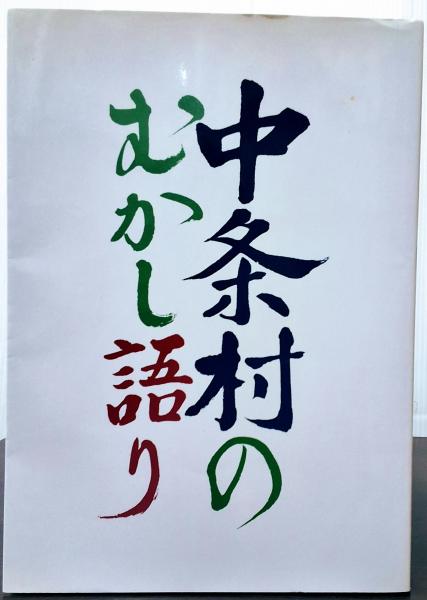 中条村の
むかし語り